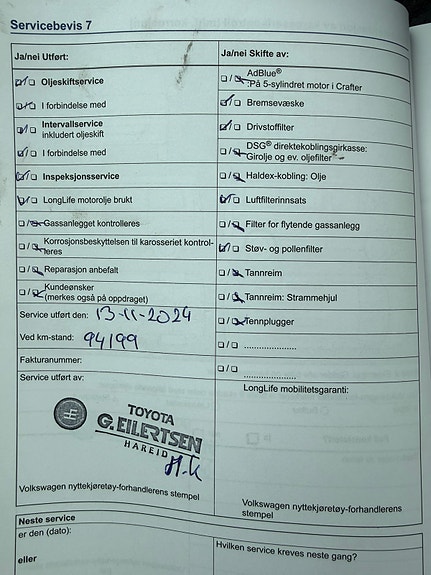 Servicebevis 7
Ja/nei Utført:
Oljeskiftservice
I forbindelse med
Intervallservice
inkludert oljeskift
I forbindelse med
Inspeksjonsservice
LongLife motorolje brukt
Gassanlegget kontrolleres
Korrosjonsbeskyttelsen til karosseriet kontrol-
leres
Reparasjon anbefalt
Kundeønsker
(merkes også på oppdraget)
Service utført den: 13-11-2024
Ved km-stand: 94199
Fakturanummer:
Service utført av:
TOYOTA
G. EILERTSEN
HAREID
H.K
Volkswagen nyttekjøretøy-forhandlerens
stempel
Ja/nei Skifte av:
AdBlue®
:På 5-sylindret motor i Crafter
Bremsevæske
Drivstoffilter
DSG® direktekoblingsgirkasse:
Girolje og ev. oljefilter
Haldex-kobling: Olje
Luftfilterinnsats
Filter for flytende gassanlegg
Støv- og pollenfilter
Tannreim
Tannreim: Strammehjul
Tennplugger
.....................
.....................
LongLife mobilitetsgaranti:
Volkswagen nyttekjøretøy-forhandlerens
stempel
Neste service
er den (dato):
eller
Hvilken service kreves neste gang?